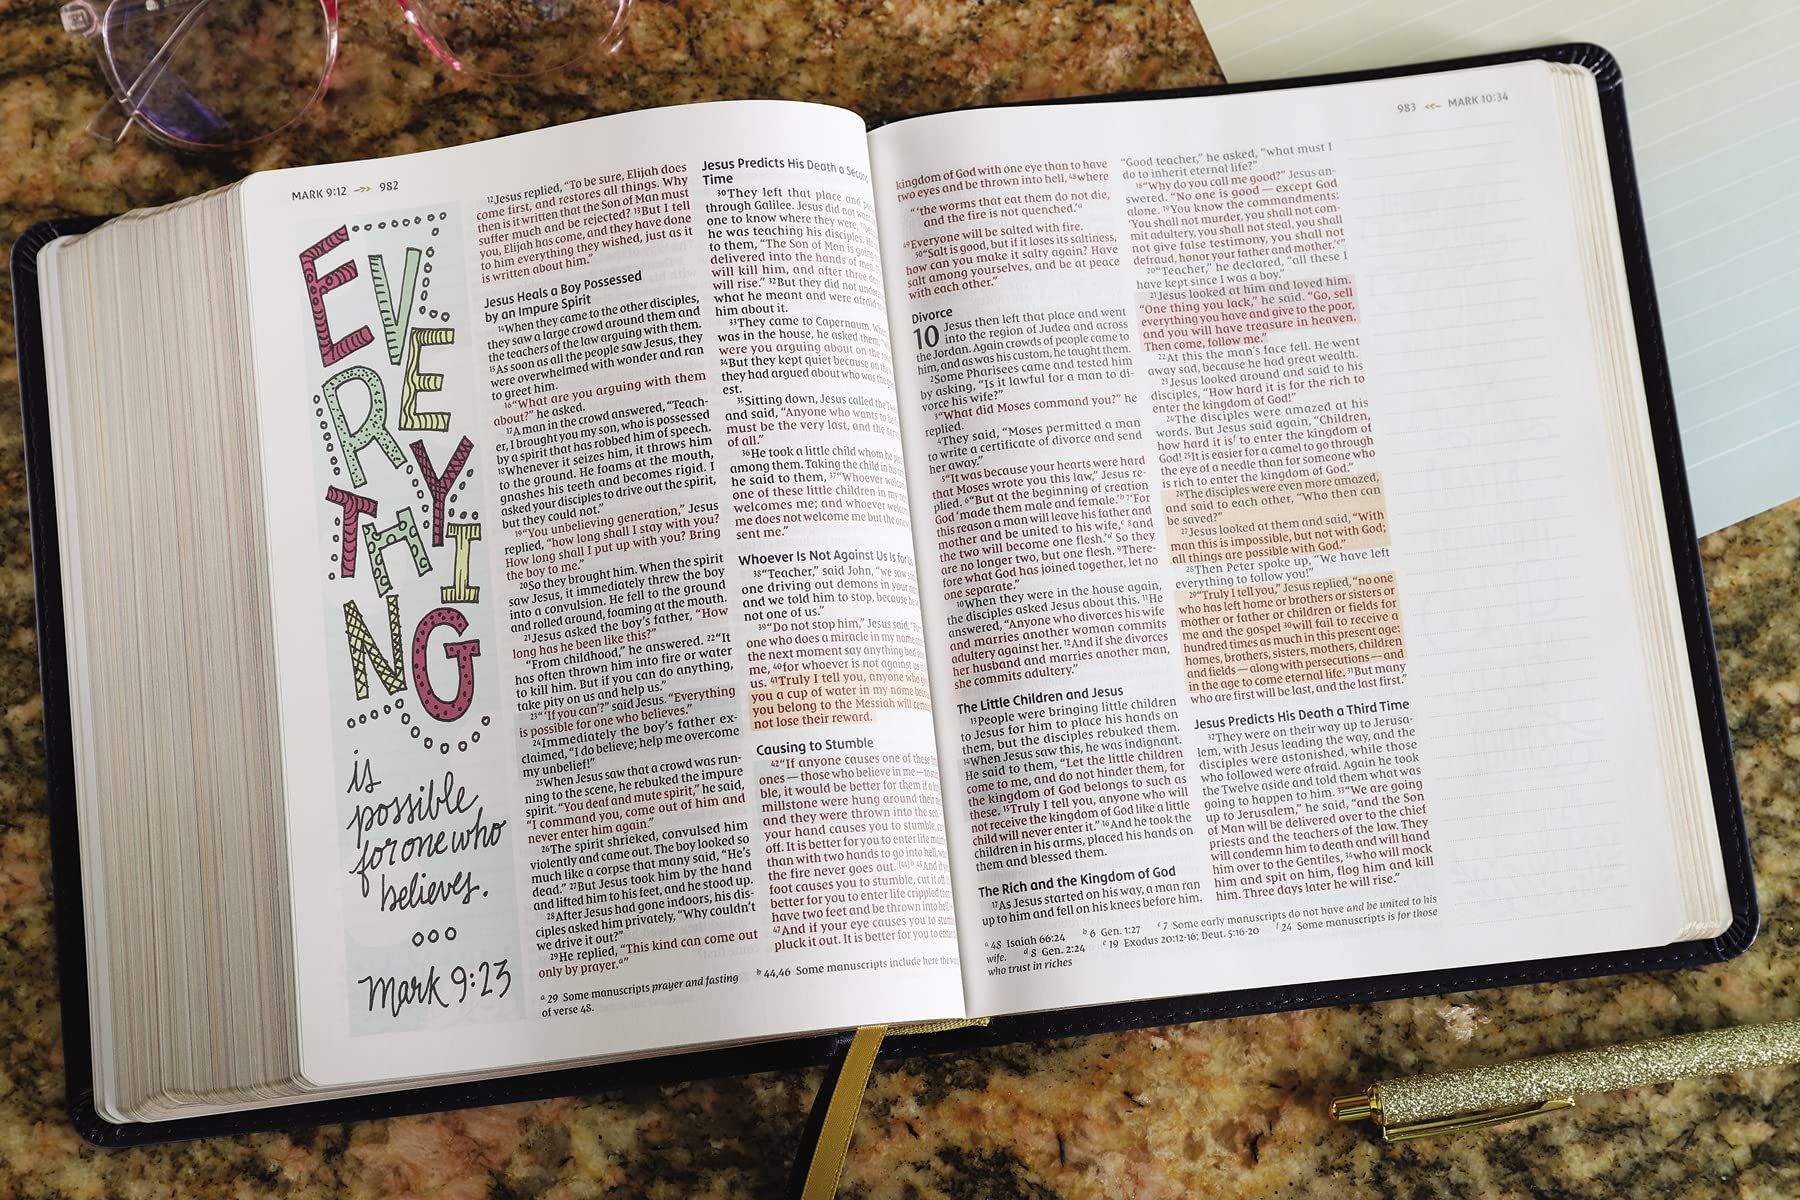 MARK 9:12 982
EVERYTHING
is
possible
for one who
believes.
Mark 9:23
12Jesus replied, “To be sure, Elijah does
come first, and restores all things. Why
then is it written that the Son of Man must
suffer much and be rejected? 13But I tell
you, Elijah has come, and they have done
to him everything they wished, just as it
is written about him.”
Jesus Heals a Boy Possessed
by an Impure Spirit
14When they came to the other disciples,
they saw a large crowd around them and
the teachers of the law arguing with them.
15As soon as all the people saw Jesus, they
were overwhelmed with wonder and ran
to greet him.
16“What are you arguing with them
about?” he asked.
17A man in the crowd answered, “Teach-
er, I brought you my son, who is possessed
by a spirit that has robbed him of speech.
18Whenever it seizes him, it throws him
to the ground. He foams at the mouth,
gnashes his teeth and becomes rigid. I
asked your disciples to drive out the spirit,
but they could not.”
19“You unbelieving generation,” Jesus
replied, “how long shall I stay with you?
How long shall I put up with you? Bring
the boy to me.”
20So they brought him. When the spirit
saw Jesus, it immediately threw the boy
into a convulsion. He fell to the ground
and rolled around, foaming at the mouth.
21Jesus asked the boy’s father, “How
long has he been like this?”
“From childhood,” he answered. 22“It
has often thrown him into fire or water
to kill him. But if you can do anything,
take pity on us and help us.”
23“ ‘If you can’?” said Jesus. “Everything
is possible for one who believes.”
24Immediately the boy’s father ex-
claimed, “I do believe; help me overcome
my unbelief!”
25When Jesus saw that a crowd was run-
ning to the scene, he rebuked the impure
spirit. “You deaf and mute spirit,” he said,
“I command you, come out of him and
never enter him again.”
26The spirit shrieked, convulsed him
violently and came out. The boy looked so
much like a corpse that many said, “He’s
dead.” 27But Jesus took him by the hand
and lifted him to his feet, and he stood up.
28After Jesus had gone indoors, his dis-
ciples asked him privately, “Why couldn’t
we drive it out?”
29He replied, “This kind can come out
only by prayer.a”
Jesus Predicts His Death a Second
Time
30They left that place and
through Galilee. Jesus did not
one to know where they were,
he was teaching his disciples. He
to them, “The Son of Man is going
delivered into the hands of men.
will kill him, and after three
will rise.” 32But they did not
what he meant and were afraid
him about it.
33They came to Capernaum. When
was in the house, he asked them,
were you arguing about on the
34But they kept quiet because on the
they had argued about who was the
est.
35Sitting down, Jesus called the
and said, “Anyone who wants to be
must be the very last, and the
of all.”
36He took a little child whom he
among them. Taking the child in his
he said to them, 37“Whoever
one of these little children in my
welcomes me; and whoever
me does not welcome me but the one
sent me.”
Whoever Is Not Against Us Is for Us
38“Teacher,” said John, “we saw
one driving out demons in your
and we told him to stop, because he
not one of us.”
39“Do not stop him,” Jesus said.
one who does a miracle in my name
the next moment say anything bad
me, 40for whoever is not against us
us. 41Truly I tell you, anyone who
you a cup of water in my name
you belong to the Messiah will
not lose their reward.
Causing to Stumble
42“If anyone causes one of these
ones — those who believe in me — to
ble, it would be better for them if a
millstone were hung around their
and they were thrown into the sea.
your hand causes you to stumble,
off. It is better for you to enter life
than with two hands to go into hell,
the fire never goes out. [44]b 45And if
foot causes you to stumble, cut it off.
better for you to enter life crippled
have two feet and be thrown into hell.
47And if your eye causes you to
pluck it out. It is better for you to enter
a 29 Some manuscripts prayer and fasting
b 44,46 Some manuscripts include here the
of verse 48.
983 MARK 10:34
kingdom of God with one eye than to have
two eyes and be thrown into hell, 48where
“ ‘the worms that eat them do not die,
and the fire is not quenched.’a
49Everyone will be salted with fire.
50“Salt is good, but if it loses its saltiness,
how can you make it salty again? Have
salt among yourselves, and be at peace
with each other.”
Divorce
10 Jesus then left that place and went
into the region of Judea and across
the Jordan. Again crowds of people came to
him, and as was his custom, he taught them.
2Some Pharisees came and tested him
by asking, “Is it lawful for a man to di-
vorce his wife?”
3“What did Moses command you?” he
replied.
4They said, “Moses permitted a man
to write a certificate of divorce and send
her away.”
5“It was because your hearts were hard
that Moses wrote you this law,” Jesus re-
plied. 6“But at the beginning of creation
God ‘made them male and female.’b 7‘For
this reason a man will leave his father and
mother and be united to his wife,c 8and
the two will become one flesh.’d So they
are no longer two, but one flesh. 9There-
fore what God has joined together, let no
one separate.”
10When they were in the house again,
the disciples asked Jesus about this. 11He
answered, “Anyone who divorces his wife
and marries another woman commits
adultery against her. 12And if she divorces
her husband and marries another man,
she commits adultery.”
The Little Children and Jesus
13People were bringing little children
to Jesus for him to place his hands on
them, but the disciples rebuked them.
14When Jesus saw this, he was indignant.
He said to them, “Let the little children
come to me, and do not hinder them, for
the kingdom of God belongs to such as
these. 15Truly I tell you, anyone who will
not receive the kingdom of God like a little
child will never enter it.” 16And he took the
children in his arms, placed his hands on
them and blessed them.
The Rich and the Kingdom of God
17As Jesus started on his way, a man ran
up to him and fell on his knees before him.
“Good teacher,” he asked, “what must I
do to inherit eternal life?”
18“Why do you call me good?” Jesus an-
swered. “No one is good — except God
alone. 19You know the commandments:
‘You shall not murder, you shall not com-
mit adultery, you shall not steal, you shall
not give false testimony, you shall not
defraud, honor your father and mother.’e”
20“Teacher,” he declared, “all these I
have kept since I was a boy.”
21Jesus looked at him and loved him.
“One thing you lack,” he said. “Go, sell
everything you have and give to the poor,
and you will have treasure in heaven.
Then come, follow me.”
22At this the man’s face fell. He went
away sad, because he had great wealth.
23Jesus looked around and said to his
disciples, “How hard it is for the rich to
enter the kingdom of God!”
24The disciples were amazed at his
words. But Jesus said again, “Children,
how hard it isf to enter the kingdom of
God! 25It is easier for a camel to go through
the eye of a needle than for someone who
is rich to enter the kingdom of God.”
26The disciples were even more amazed,
and said to each other, “Who then can
be saved?”
27Jesus looked at them and said, “With
man this is impossible, but not with God;
all things are possible with God.”
28Then Peter spoke up, “We have left
everything to follow you!”
29“Truly I tell you,” Jesus replied, “no one
who has left home or brothers or sisters or
mother or father or children or fields for
me and the gospel 30will fail to receive a
hundred times as much in this present age:
homes, brothers, sisters, mothers, children
and fields — along with persecutions — and
in the age to come eternal life. 31But many
who are first will be last, and the last first.”
Jesus Predicts His Death a Third Time
32They were on their way up to Jerusa-
lem, with Jesus leading the way, and the
disciples were astonished, while those
who followed were afraid. Again he took
the Twelve aside and told them what was
going to happen to him. 33“We are going
up to Jerusalem,” he said, “and the Son
of Man will be delivered over to the chief
priests and the teachers of the law. They
will condemn him to death and will hand
him over to the Gentiles, 34who will mock
him and spit on him, flog him and kill
him. Three days later he will rise.”
a 48 Isaiah 66:24 b 6 Gen. 1:27 c 7 Some early manuscripts do not have and be united to his
wife. d 8 Gen. 2:24 e 19 Exodus 20:12-16; Deut. 5:16-20 f 24 Some manuscripts is for those
who trust in riches